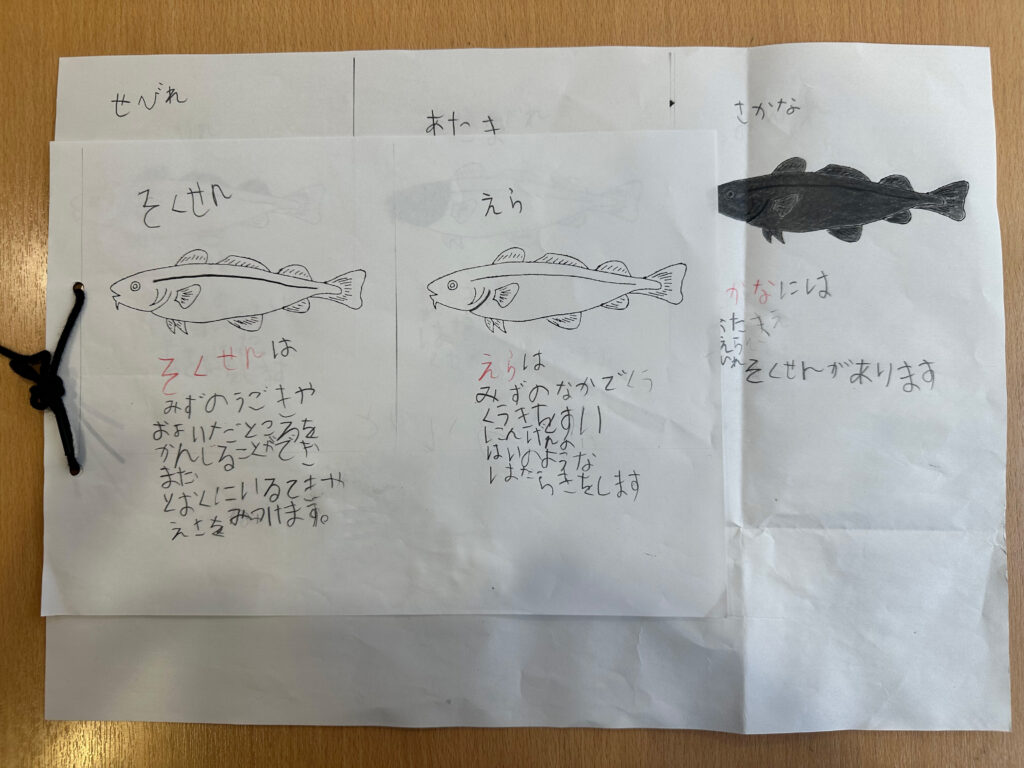 せびれ
あたま
さかな
そくせん
そくせんは
みずのうごきや
ところを
かんしることができ
また
とおくにいるてきや
えさをみつけます。
えら
えらは
みずのなかでくう
くうきをすい
にんげんの
はいのような
はたらきをします
かなには
たま
えら
そくせんがあります